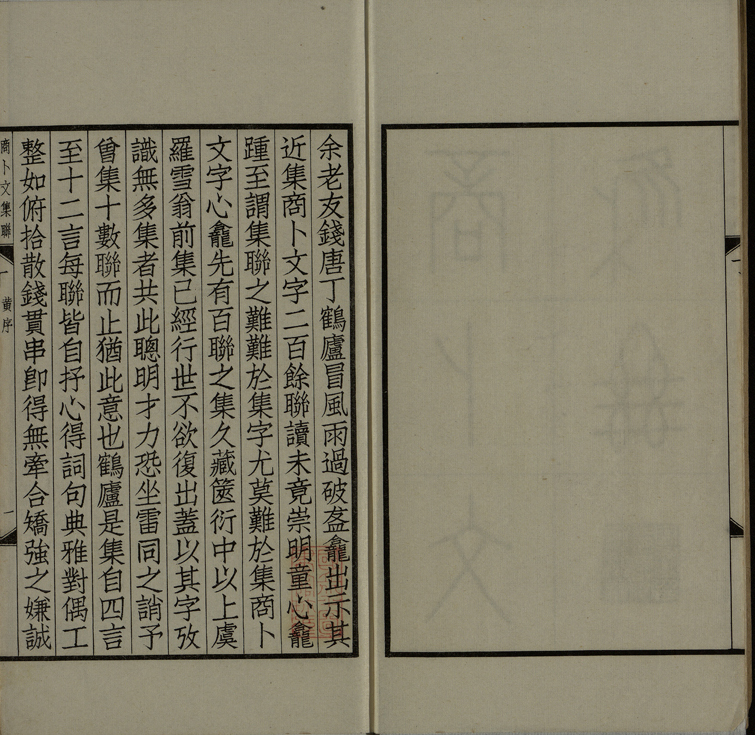 余老友錢唐丁鶴廬冒風雨過破盔龕出示其
近集商卜文字二百餘聯讀未竟崇明童心龕
踵至謂集聯之難難於集字尤莫難於集商卜
文字心龕先有百聯之集久藏篋衍中以上虞
羅雪翁前集已經行世不欲復出蓋以其字攷
識無多集者共此聰明才力恐坐雷同之誚予
曾集十數聯而止猶此意也鶴廬是集自四言
至十二言每聯皆自抒心得詞句典雅對偶工
整如俯拾散錢貫串卽得無牽合矯強之嫌誠
商卜文集聯
黃序
一